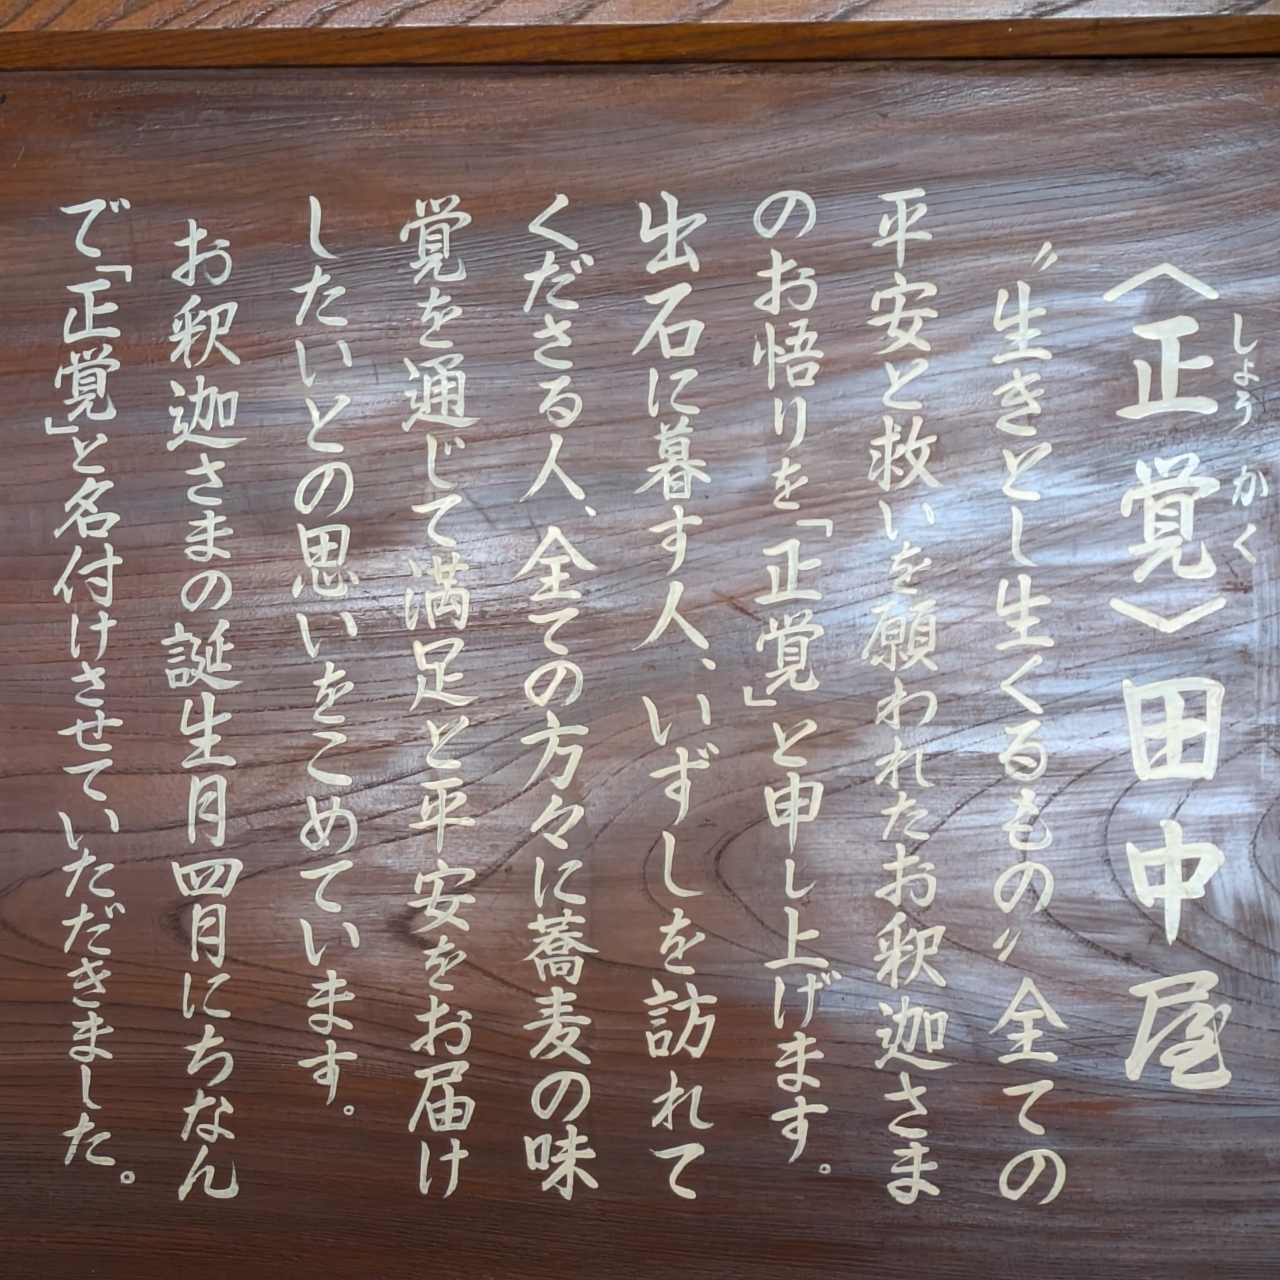 〈正覚〉田中屋
しょうかく
〝生きとし生くるもの〟全ての
平安と救いを願われたお釈迦さま
のお悟りを「正覚」と申し上げます。
出石に暮す人、いずしを訪れて
くださる人、全ての方々に蕎麦の味
覚を通じて満足と平安をお届け
したいとの思いをこめています。
お釈迦さまの誕生月四月にちなん
で「正覚」と名付けさせていただきました。